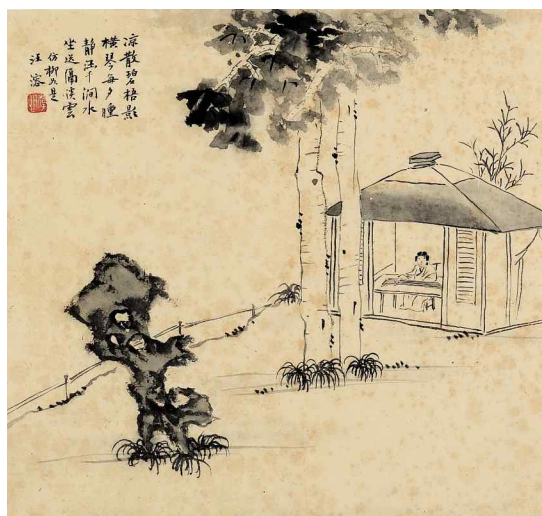 涼散碧梧影
橫琴每夕曛
靜千澗水
坐送隔溪雲
仿柳如是
汪溶